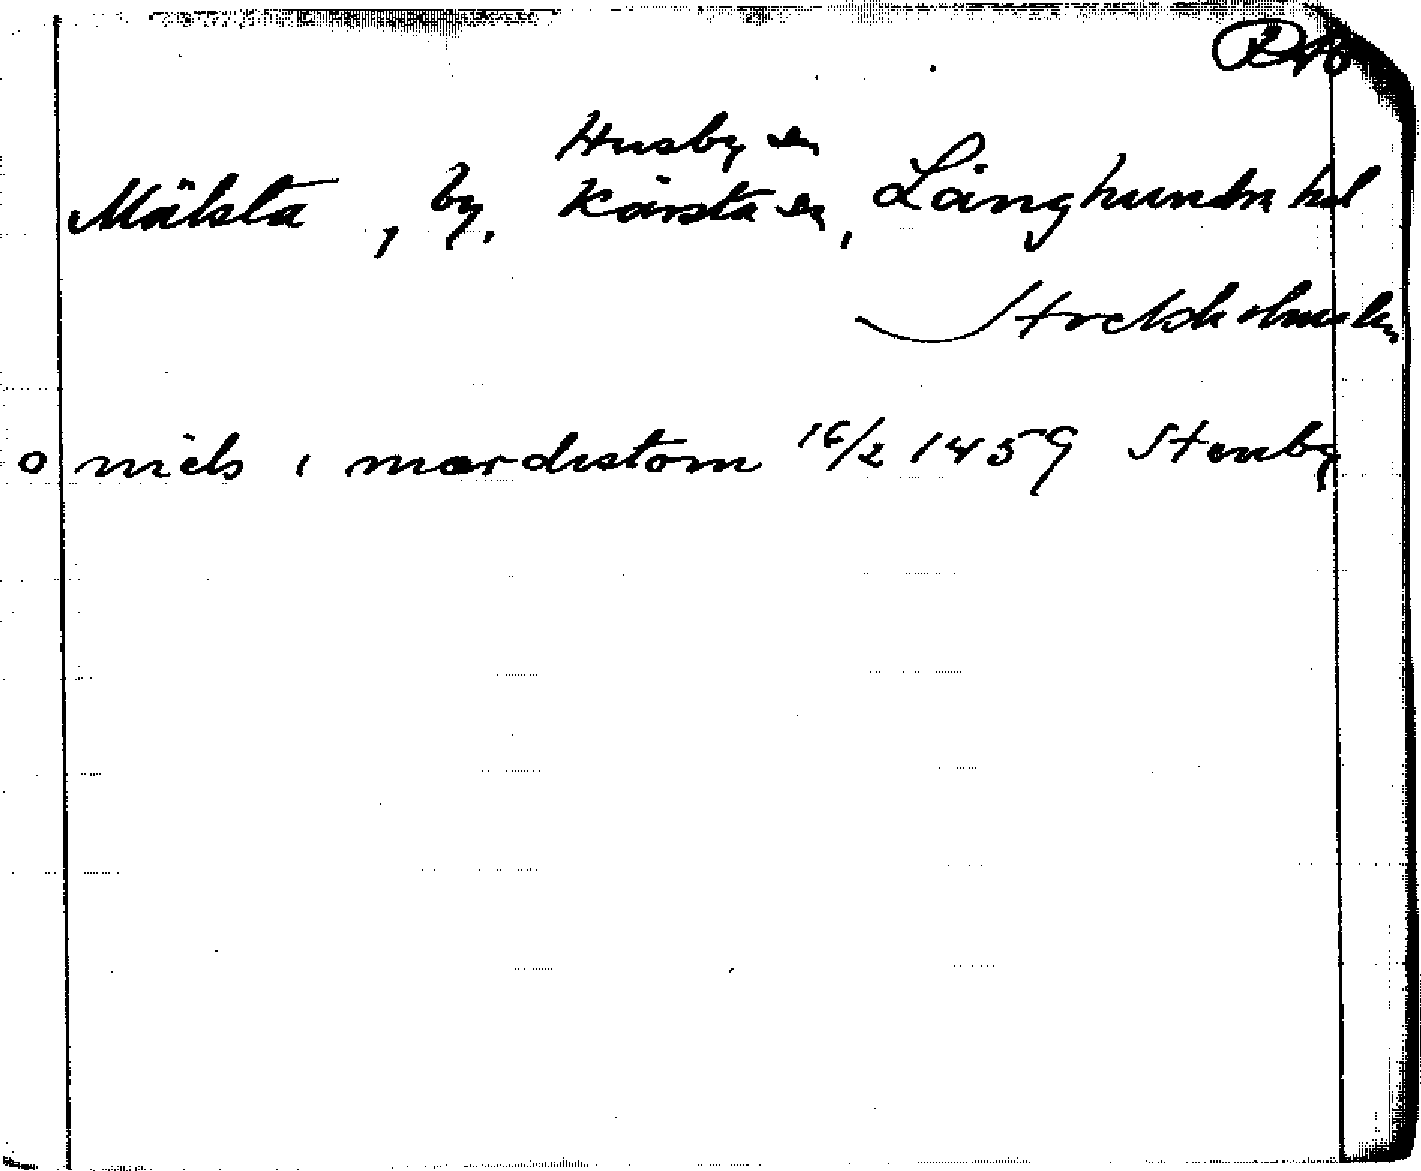 Husby sn
Mälsta, by, Kårsta sn, Långhundra hd
Stockholms län
o niels i mærdistom 16/2 1459 Stenby